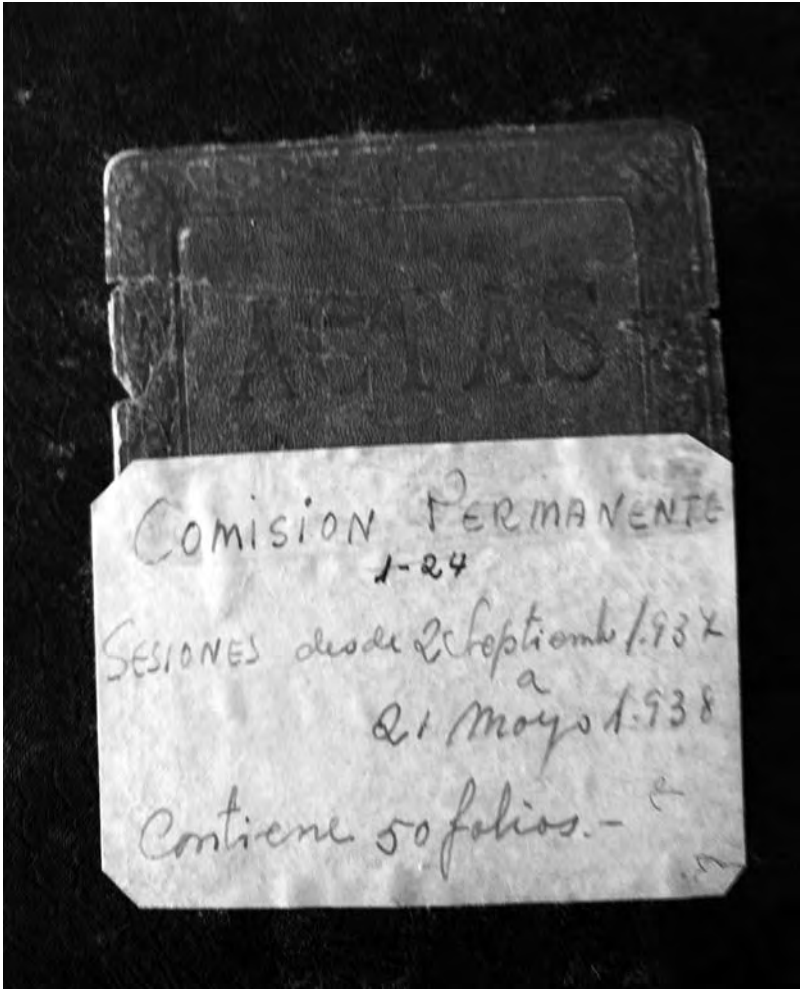 ACTAS
COMISION PERMANENTE
1-24
SESIONES desde Septiembre 1.937
a
21 Mayo 1.938
Contiene 50 folios.-